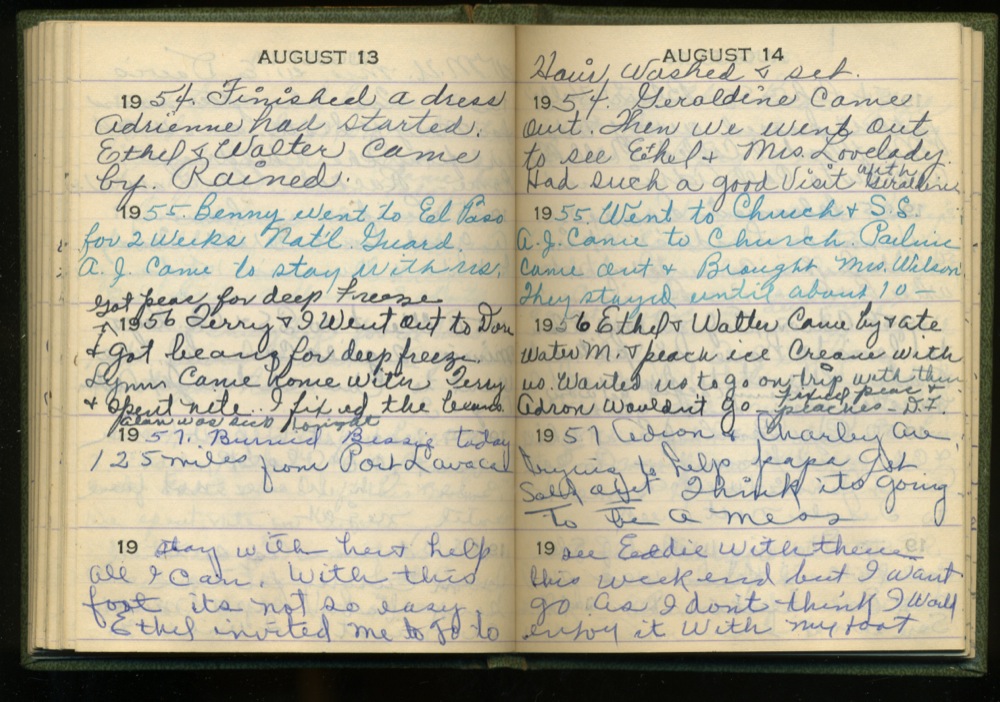 AUGUST 13
1954. Finished a dress
Adrienne had started.
Ethel & Walter came
by. Rained.
1955. Benny went to El Paso
for 2 Weeks Nat'l. Guard.
A. J. Came to stay with us.
Got peas for deep Freeze
1956 Terry & I Went out to Don
& got beans for deep freeze.
Lynn Came home with Terry
& spent nite. I fixed the beans
was sub tonight
1957. Buried Bessie today
125 miles from Port Lavaca
19 stay with her & help
all I can. With this
foot its not so easy
Ethel invited me to go to
AUGUST 14
Hair Washed & set.
1954. Geraldine Came
out. Then we went out
to see Ethel & Mrs. Lovelady.
Had such a good Visit with Geraldine
1955. Went to Church & S.S.
A. J. Came to Church. Pauline
came out & Brought Mrs. Wilson.
They stayed until about 10 —
1956 Ethel & Walter Came by & ate
Water M. & peach ice Creame with
us. Wanted us to go on trip with them
Adron Wouldn't go — Fixed peas &
peaches — D.F.
1957 Adron & Charley are
trying to help papa get
Think its going
to be a mess
19 see Eddie With them
this week end but I want
go as I don't think I Would
enjoy it With my foot